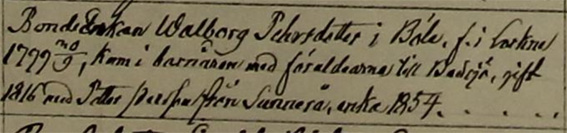 Bonde Enkan Walborg Pehrsdotter i Böle, f. i Lockne
1799 20/9, kom i barnåren med föräldrarna till Bodsjö, gift
1816 med Petter från Sunnerå, enka 1854.